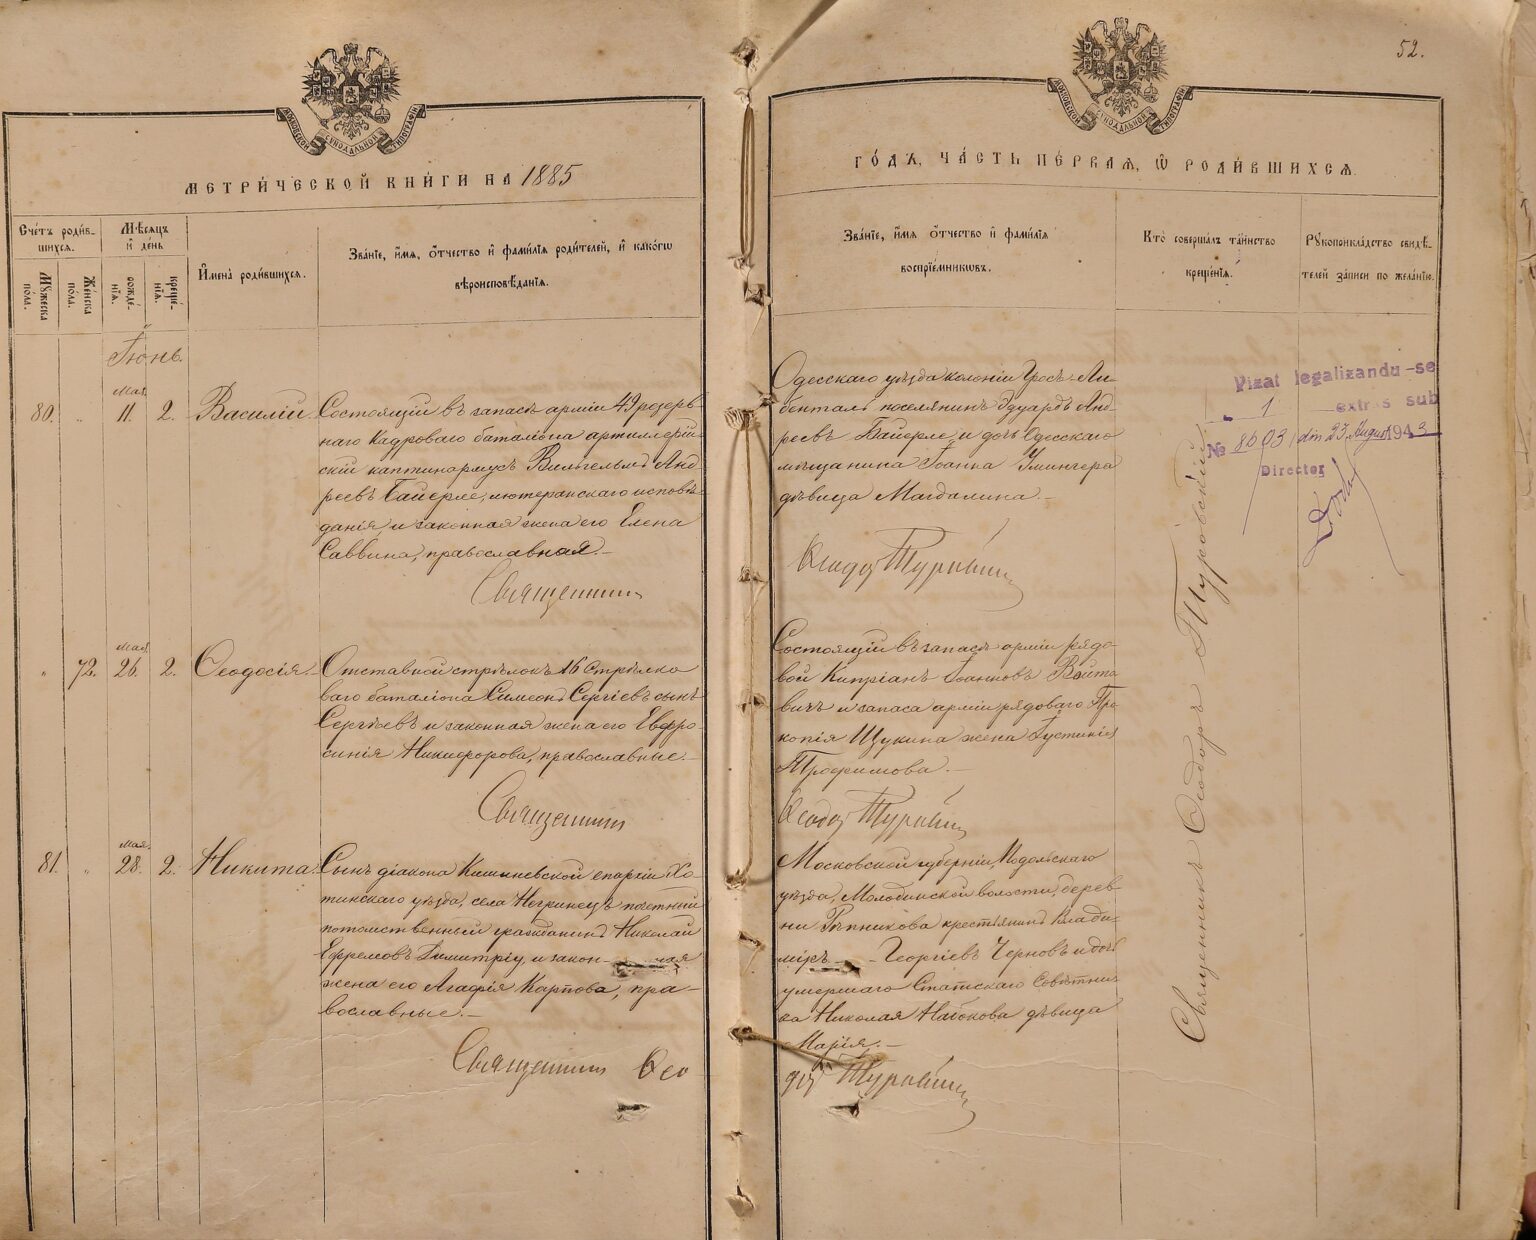 52.
МОСКОВСКОЙ СѴНОДАЛЬНОЙ ТИПОГРАФІИ
МОСКОВСКОЙ СѴНОДАЛЬНОЙ ТИПОГРАФІИ
МЕТРИ́ЧЕСКОЙ КНИ́ГИ НА 1885
ГО́ДЪ, ЧА́СТЬ ПЕ́РВАѦ, Ѡ҆ РОДИ́ВШИХСѦ.
Сче́тъ роди́в-
шихсѧ.
Мꙋ́жеска по́ла.
Же́нска по́ла.
Мѣ́сѧцъ
и҆ де́нь
рожде́-
нїѧ.
креще́-
нїѧ.
И҆мена̀ роди́вшихсѧ.
Зва́нїе, и҆́мѧ, ѻ҆́тчество и҆ фами́лїѧ роди́телей, и҆ како́гѡ
вѣроисповѣ́данїѧ.
Зва́нїе, и҆́мѧ ѻ҆́тчество и҆ фами́лїѧ
воспрїе́мникѡвъ.
Кто̀ соверша́лъ та́инство
креще́нїѧ.
Рꙋкоприкла́дство свидѣ́-
телей за́писи по жела́нїю.
Іюнь.
80. „ мая 11. 2. Василій
Состоящій въ запасѣ арміи 49 резерв-
наго Кадроваго баталіона артиллерій-
скій каптинармусъ Вильгельмъ Анд-
реевъ Байерле, лютеранскаго исповѣ-
данія, и законная жена его Елена
Саввина, православная.–
Священникъ
Одесскаго уѣзда колоніи Гросъ-Ли-
бенталь поселянинъ Эдуардъ Анд-
реевъ Байерле, и дочь Одесскаго
мѣщанина Іоанна
дѣвица Магдалина.–
Ѳеодоръ Туровскій
„ 72. мая 26. 2. Ѳеодосія.
Отставной стрѣлокъ 16 Стрѣлко
ваго баталіона Симеонъ Сергіевъ сынъ
Сергѣевъ и законная жена его Евфро-
синія Никифорова, православные.–
Священникъ
Состоящій въ запасѣ арміи рядо-
вой Кипріанъ Іоанновъ Войта
вичъ и запаса арміи рядоваго Про
копія Щукина жена Іустинія
Трофимова.–
Ѳеодоръ Туровскій
81. „ мая 28. 2. Никита.
Сынъ діакона Кишиневской епархіи Хо-
тинскаго уѣзда, села Негринецъ почетный
потомственный гражданинъ Николай
Ефремовъ Димитріу, и закон- ная
жена его Агафія Карпова, пра-
вославные.–
Священникъ Ѳео
Московской губерніи, Подольскаго
уѣзда, Молодинской волости, дерев-
ни Рѣпникова крестьянинъ Влади-
міръ – Георгіевъ Черновъ и дочь
умершаго Статскаго Совѣтни-
ка Николая Набокова дѣвица
Марія.–
доръ Туровскій
Священникъ Ѳеодоръ Туровскій
Vizat legalizandu-se
1 extras sub
№ 8603 din 23 August 1943
Director